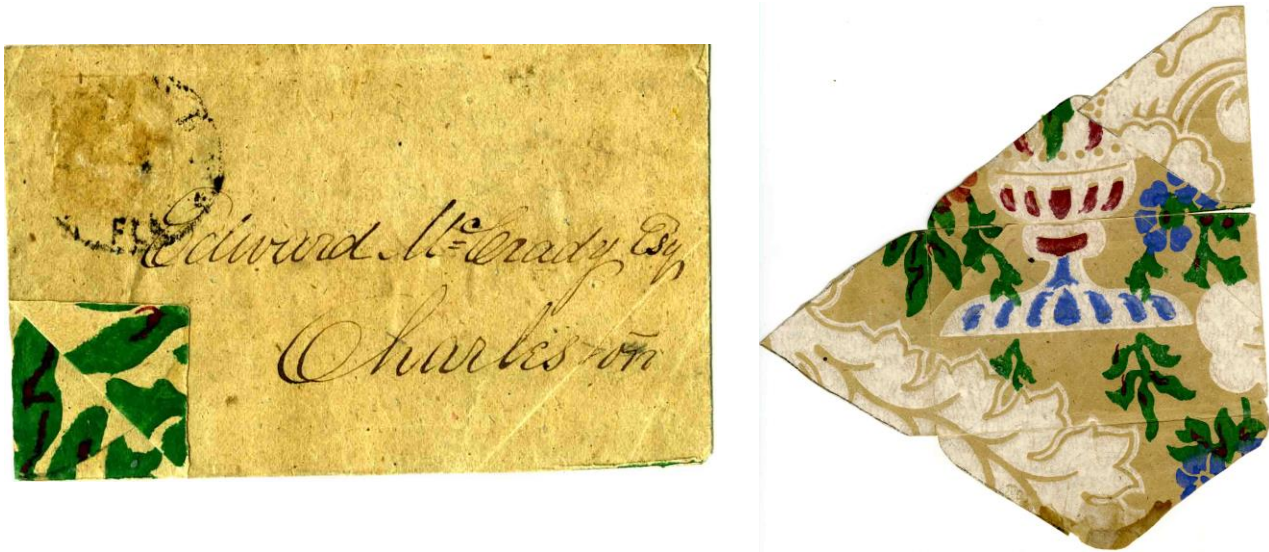 Edward Mc Crady Esq
Charleston